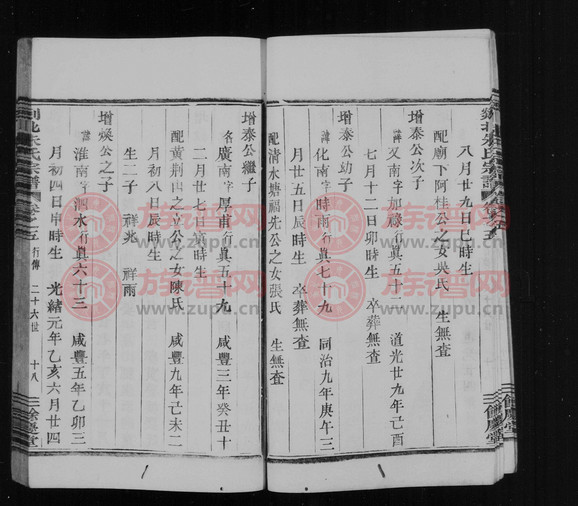 八月廿九日巳時生
配廟下阿桂公之女吳氏 生無查
增泰公次子
諱文南字加祿行真五十二 道光廿九年己酉
七月十二日卯時生 卒葬無查
增泰公幼子
諱化南字時雨行真七十九 同治九年庚午三
月廿五日辰時生 卒葬無查
配清水塘福先公之女張氏 生無查
增泰公繼子
名廣南字厚甫行真五十九 咸豐三年癸丑十
二月廿七日辰時生
配黄荆山之立公之女陳氏 咸豐九年己未二
月初八日辰時生
生二子 祥兆 祥雨
增煥公之子
諱淮南字泗水行真六十三 咸豐五年乙卯三
月初四日申時生 光緒元年乙亥六月廿四
北朱氏宗譜 卷之五 行傳 二十六世 十八 餘慶堂
族谱网
www.zupu.cn